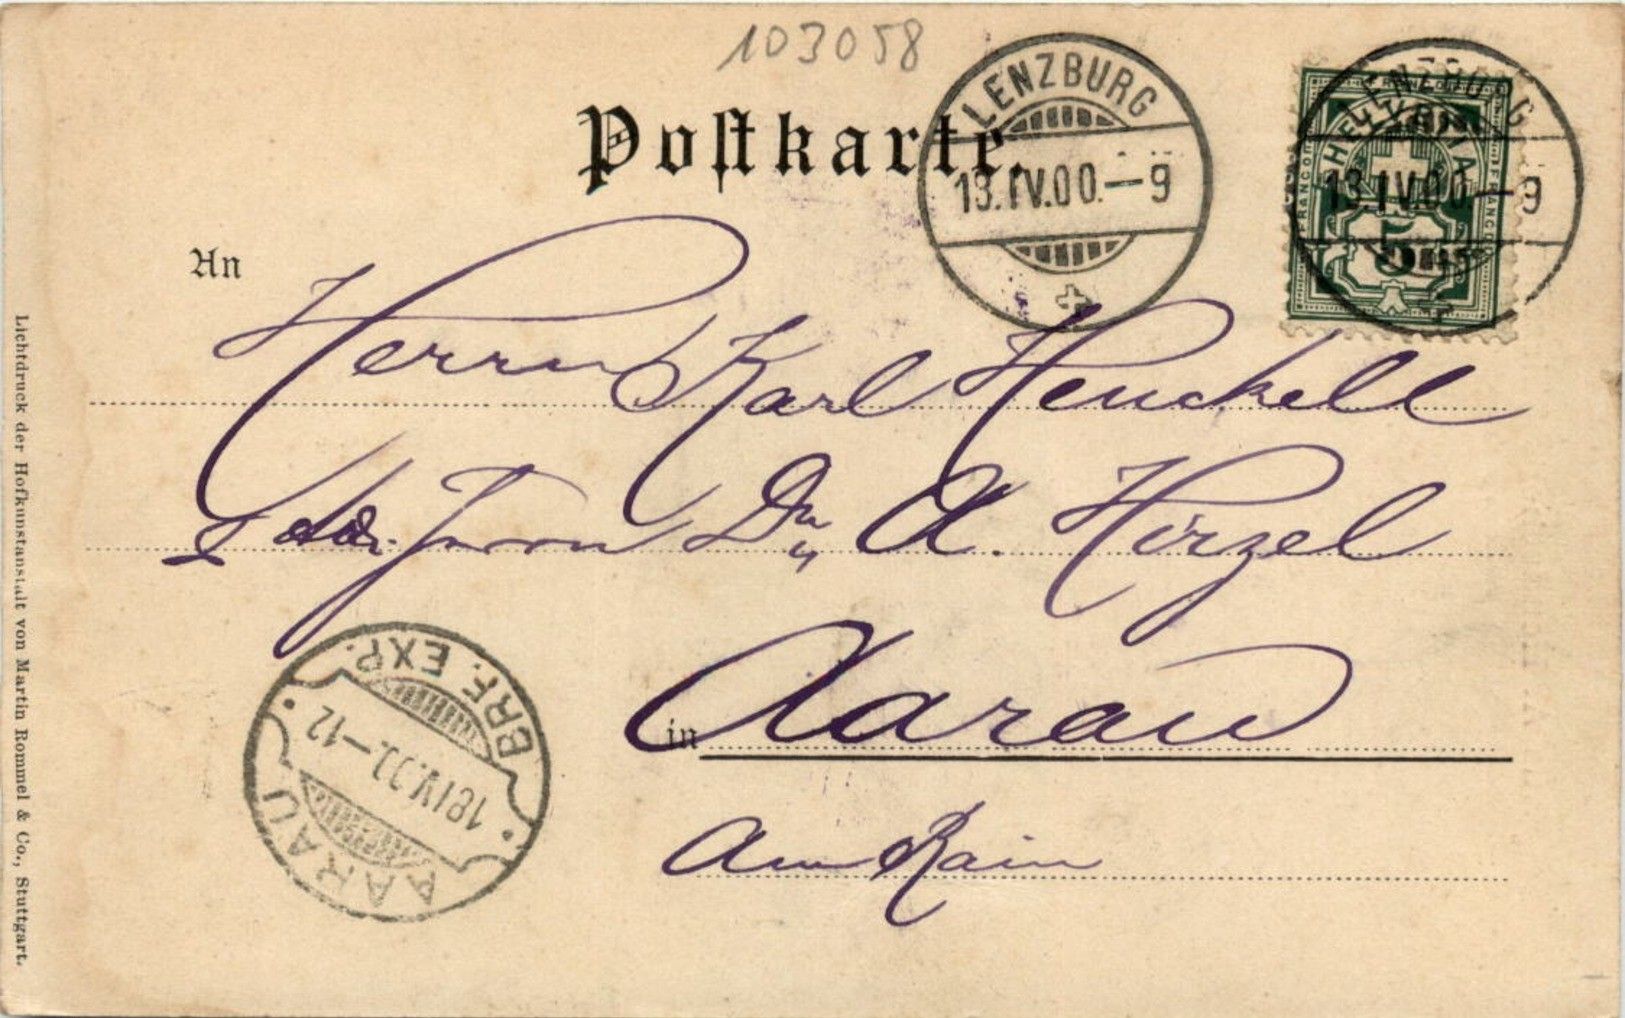 103058
Postkarte.
LENZBURG
13.IV.00.–9
LENZBURG
13.IV.00.–9
HELVETIA
FRANCO
FRANCO
5
An
Herrn Karl Henckell
adr. Frau Dr. A. Hirzel
in Aarau
am Rain
AARAU BRF. EXP.
13.IV.00.–12
Lichtdruck der Hofkunstanstalt von Martin Rommel & Co., Stuttgart.